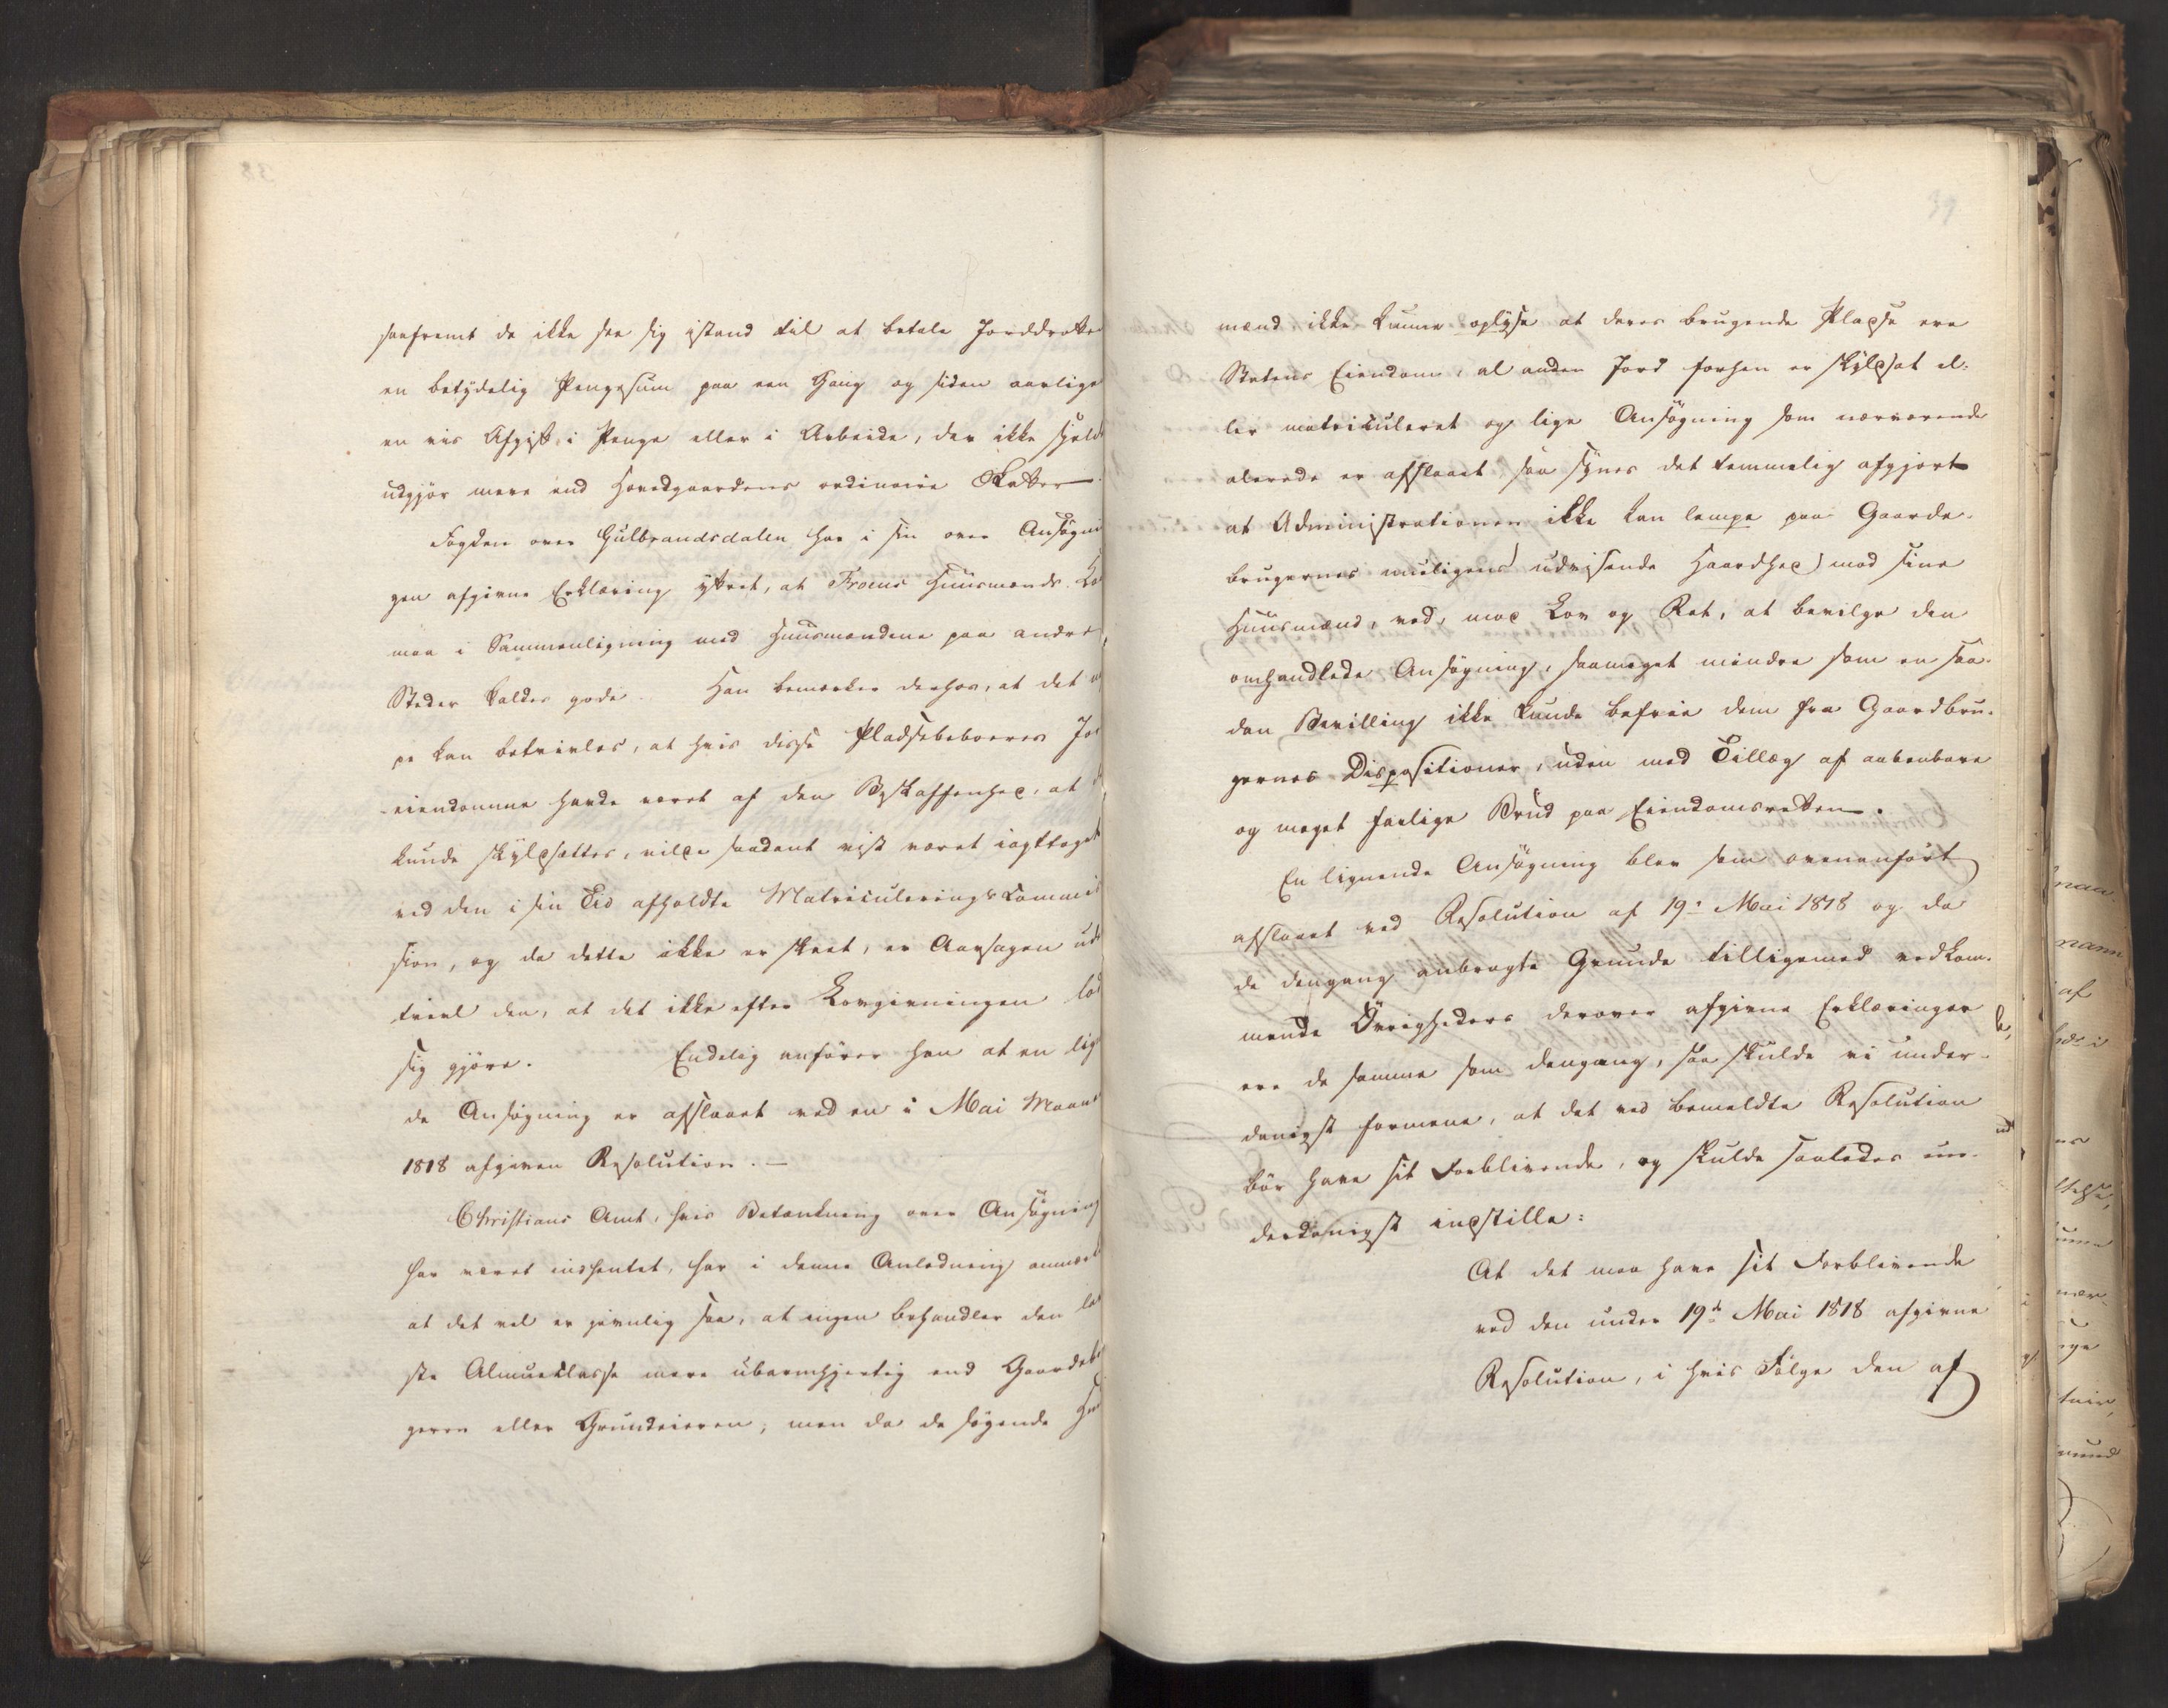 saafremt de ikke see sig istand til at betale Jorddrotten
en betydelig Pengesum paa een Gang og siden aarligen
en vis Afgift, i Penge eller i Arbeide, der ikke sjeld
udgjør mere end Hovedgaardens ordinaire Skatter.
Fogden over Gulbrandsdalen har i sin over Ansøgnin
gen afgivne Erklæring yttret, at Froens Huusmænds Kaar
maa i Sammenligning med Huusmændene paa andre
Steder kaldes gode. Han bemærker derhos, at det ei
pe kan betvivles, at hvis disse Pladsebeboeres Jor
eiendomme havde været af den Beskaffenhed, at de
kunde skyldsættes, vilde saadant vist været iagttaget
ved den i sin Tid afholdte Matriculerings Commis
sion, og da dette ikke er skeet, er Aarsagen uden
tvivl den, at det ikke efter Lovgivningen lod
sig gjøre. Endelig anfører han at en lig
de Ansøgning er afslaaet ved en i Mai Maaned
1818 afgiven Resolution. —
Christians Amt, hvis Betænkning over Ansøgning
har været indhentet, har i denne Anledning anmærk
at det vel er jevnlig saa, at ingen behandler den la
ste Almueklasse mere ubarmhjertig end Gaardbru
geren eller Grundeieren; men da de søgende Huus
39
mænd ikke kunne oplyse at deres brugende Pladse ere
Statens Eiendom, al anden Jord forhen er skyldsat el-
ler matriculeret og lige Ansøgning som nærværende
alerede er afslaaet, saa synes det temmelig afgjort
at Administrationen ikke kan lempe paa Gaard-
brugernes muligens udvisende Haardhed mod sine
Huusmænd, ved, mod Lov og Ret, at bevilge den
omhandlede Ansøgning, saameget mindre som en saa-
dan Bevilling ikke kunde befrie dem fra Gaardbru-
gernes Dispositioner, uden med Tillæg af aabenbare
og meget farlige Brud paa Eiendomsretten.
En lignende Ansøgning blev som ovenanført
afslaaet ved Resolution af 19: Mai 1818 og da
de dengang anbragte Grunde tilligemed vedkom-
mende Øvrigheders derover afgivne Erklæringer
ere de samme som dengang, saa skulde vi under-
danigst formene, at det ved bemeldte Resolution
bør have sit Forblivende, og skulde saaledes un-
derdanigst indstille:
At det maa have sit Forblivende
ved den under 19de Mai 1818 afgivne
Resolution, i hvis Følge den af